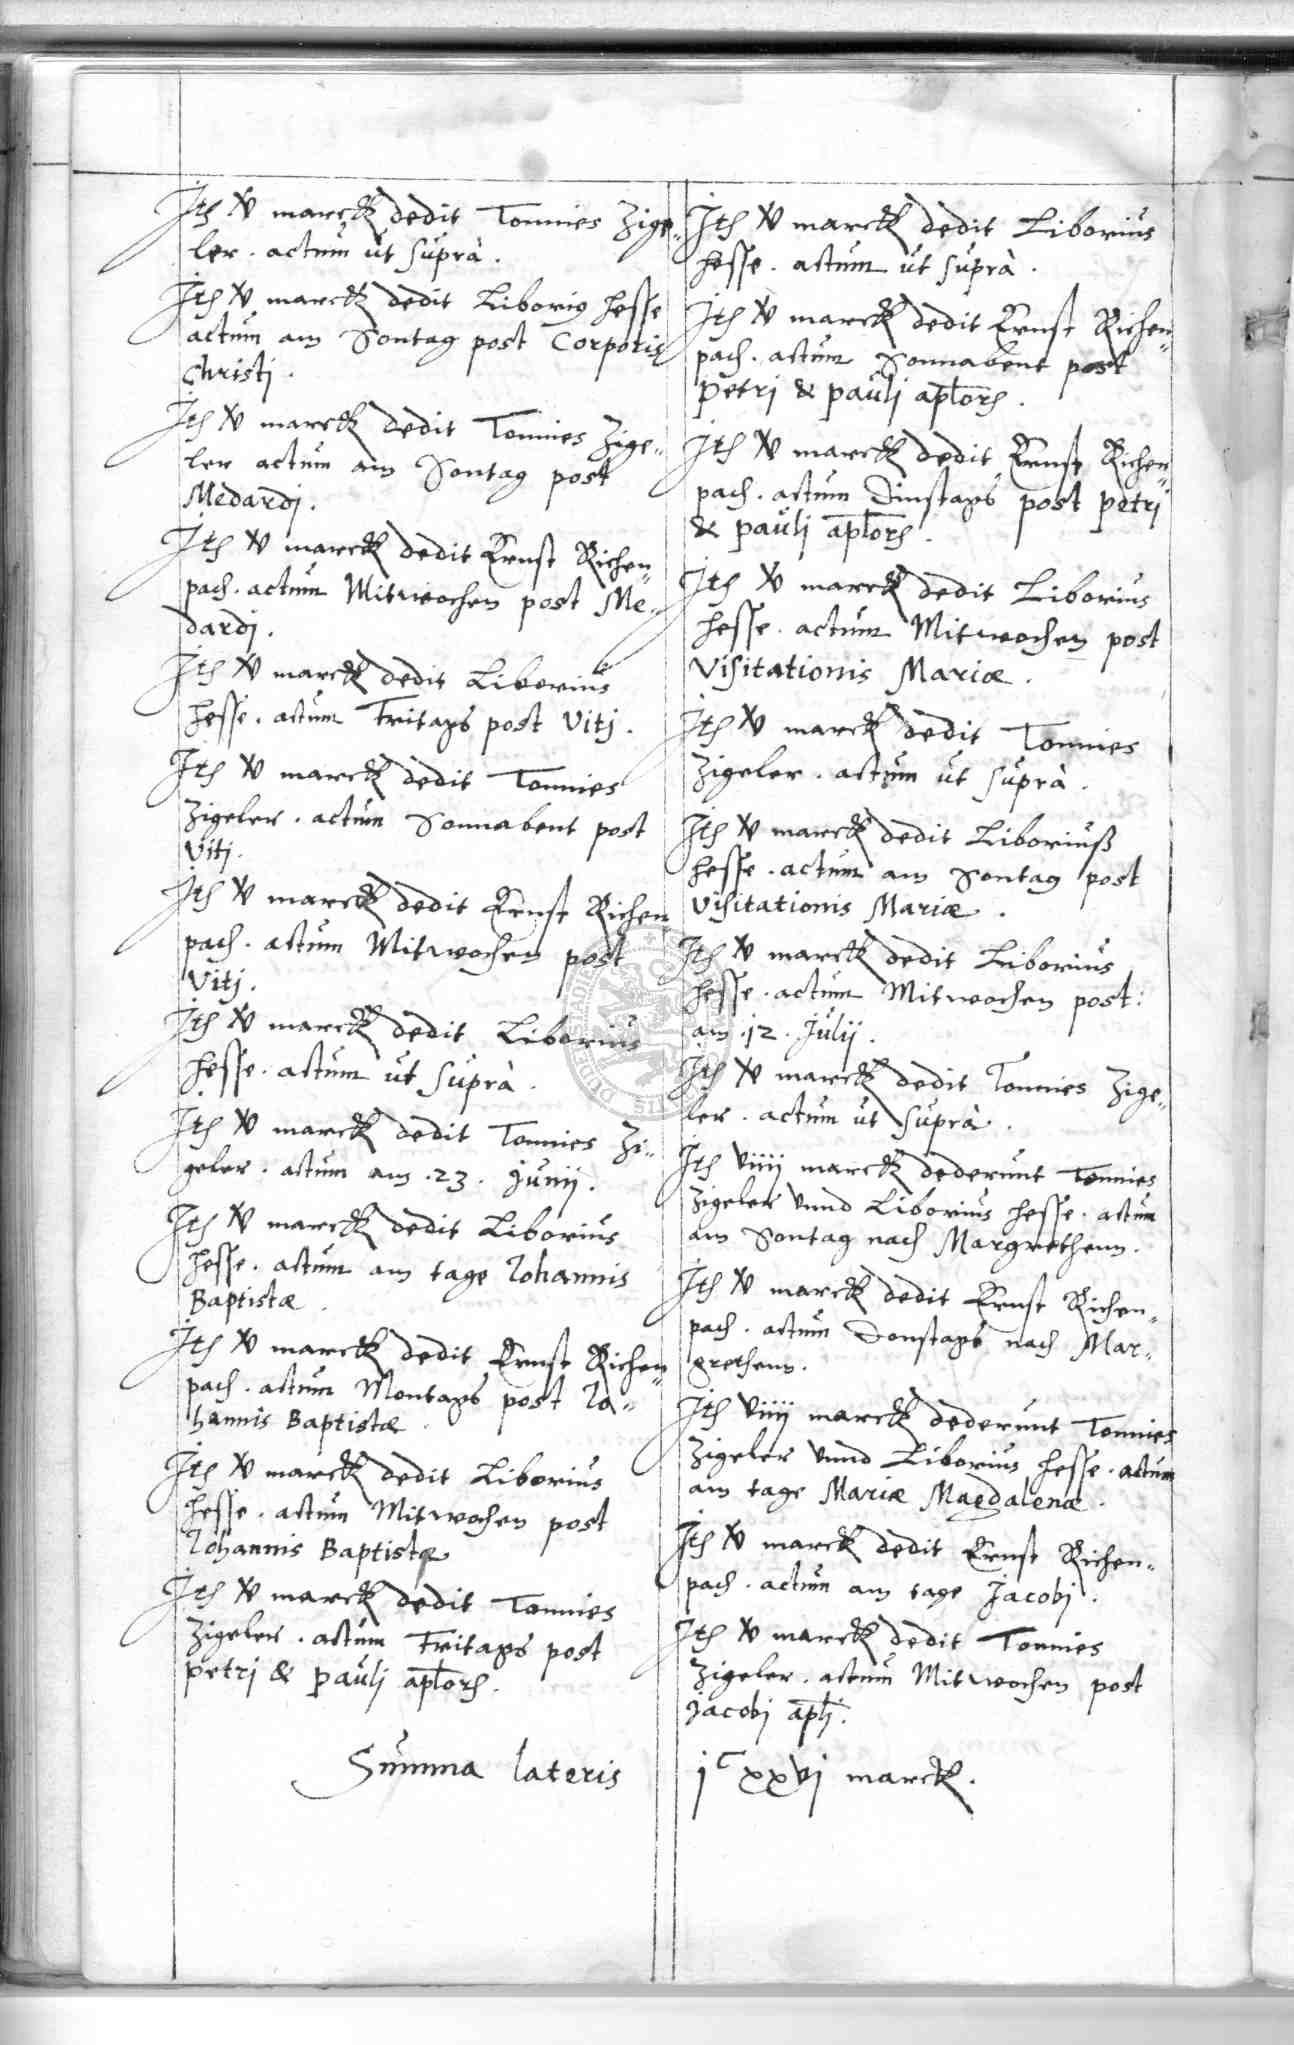 Itē v̸ marck dedit Tonnies Zige„
ler . actum ut suprà .
Itē v̸ marck dedit Liborig hesse
actum am Sontag post Corporis
Christj .
Itē v̸ marck dedit Tonnies Zige„
ler actum am Sontag post
Medardj .
Itē v̸ marck dedit Ernst Richen„
pach . actum Mitwochen post Me„
dardj .
Itē v̸ marck dedit Liborius
hesse . actum Fritags post Vitj .
Itē v̸ marck dedit Tonnies
Zigeler . actum Sonnabent post
Vitj .
Itē v̸ marck dedit Ernst Richen
pach . actum Mitwochen post
Vitj .
Itē v̸ marck dedit Liborius
hesse . actum ut suprà .
Itē v̸ marck dedit Tonnies Zi„
geler . actum am .23. Junij .
Itē v̸ marck dedit Liborius
hesse . actum am tage Iohannis
Baptistæ .
Itē v̸ marck dedit Ernst Richen„
pach . actum Montags post Io„
hannis Baptistæ .
Itē v̸ marck dedit Liborius
hesse . actum Mitwochen post
Iohannis Baptistæ
Itē v̸ marck dedit Tonnies
Zigeler . actum Fritags post
Petri & Pauli ap̄lorē .
Summa lateris
Itē v̸ marck dedit Liborius
hesse . actum ut suprà .
Itē v̸ marck dedit Ernst Richen„
pach . actum Sonnabent post
Petrj & Paulj ap̄lorē .
Itē v̸ marck dedit Ernst Richen„
pach . actum Dinstags post Petrj
& Paulj ap̄lorē .
Itē v̸ marck dedit Liborius
hesse . actum Mitwochen post
Visitationis Mariæ .
Itē v̸ marck dedit Tonnies
Zigeler . actum ut suprà .
Itē v̸ marck dedit Liboriuß
hesse . actum am Sontag post
Visitationis Mariæ .
Itē v̸ marck dedit Liborius
hesse . actum Mitwochen post:
am .12. Julij .
Itē v̸ marck dedit Tonnies Zige„
ler . actum ut suprà .
Itē viiij marck dederunt Tonnies
Zigeler vnnd Liborius hesse . actum
am Sontag nach Margrethenn .
Itē v̸ marck dedit Ernst Richen„
pach . actum Donstags nach Mar„
grethenn .
Itē viiij marck dederunt Tonnies
Zigeler vnnd Liborius hesse . actum
am tage Mariæ Magdalenæ .
Itē v̸ marck dedit Ernst Richen„
pach . actum am tage Jacobj .
Itē v̸ marck dedit Tonnies
Zigeler . actum Mitwochen post
Jacobj ap̄lj .
jᶜ xxvj marck .